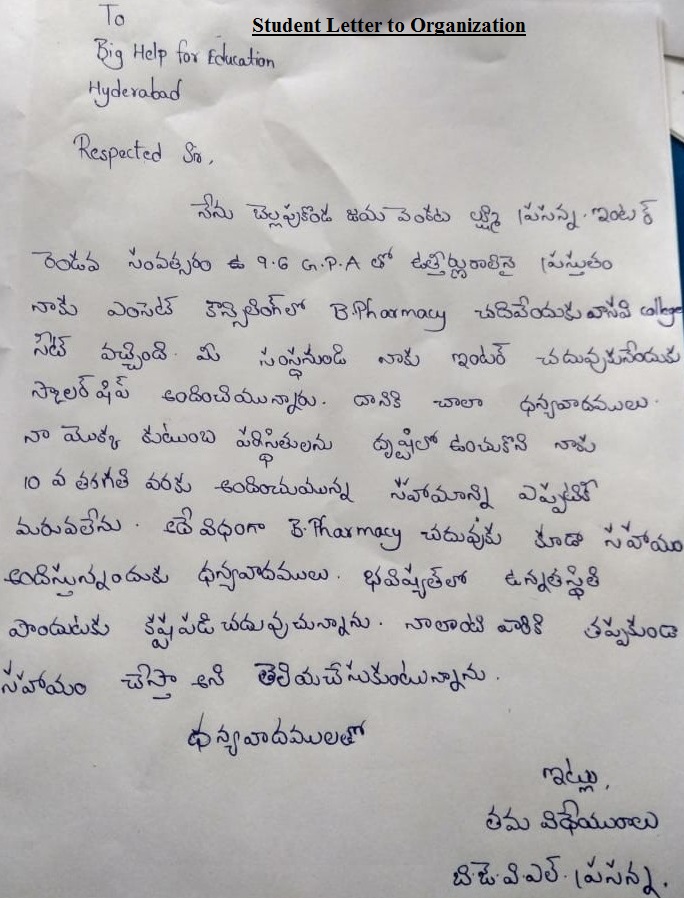 Student Letter to Organization
To
Big Help for Education
Hyderabad
Respected Sir,
నేను చెల్లపుకొండ జయ వెంకట లక్ష్మి ప్రసన్న. ఇంటర్
రెండవ సంవత్సరం ఉ 9.6 G.P.A లో ఉత్తీర్ణురాలినై ప్రస్తుతం
నాకు ఎంసెట్ కౌన్సిలింగ్‌లో B.Pharmacy చదివేందుకు వాసవి college
సీట్ వచ్చింది. మీ సంస్థనుండి నాకు ఇంటర్ చదువుకునేందుకు
స్కాలర్ షిప్ అందించియున్నారు. దానికి చాలా ధన్యవాదములు.
నా యొక్క కుటుంబ పరిస్థితులను దృష్టిలో ఉంచుకొని నాకు
10 వ తరగతి వరకు అందించుమున్న సహాయాన్ని ఎప్పటికీ
మరువలేను. అదే విధంగా B.Pharmacy చదువుకు కూడా సహాయం
అందిస్తున్నందుకు ధన్యవాదములు. భవిష్యత్‌లో ఉన్నతస్థితి
పొందుటకు కష్టపడి చదువుచున్నాను. నాలాంటి వారికి తప్పకుండా
సహాయం చేస్తా అని తెలియచేసుకుంటున్నాను.
ధన్యవాదములతో
ఇట్లు,
తమ విధేయురాలు
బి.జె.వి.ఎల్. ప్రసన్న.